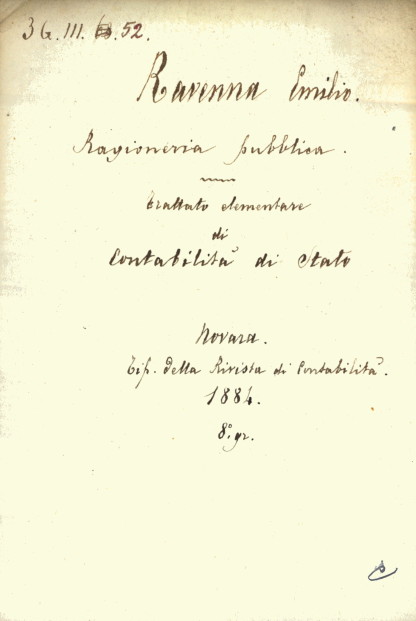 36.III. .52.
Ravenna Emilio.
Ragioneria pubblica.
Trattato elementare
di
Contabilità di Stato
Novara.
Tip. della Rivista di Contabilità.
1884.
8° gr.